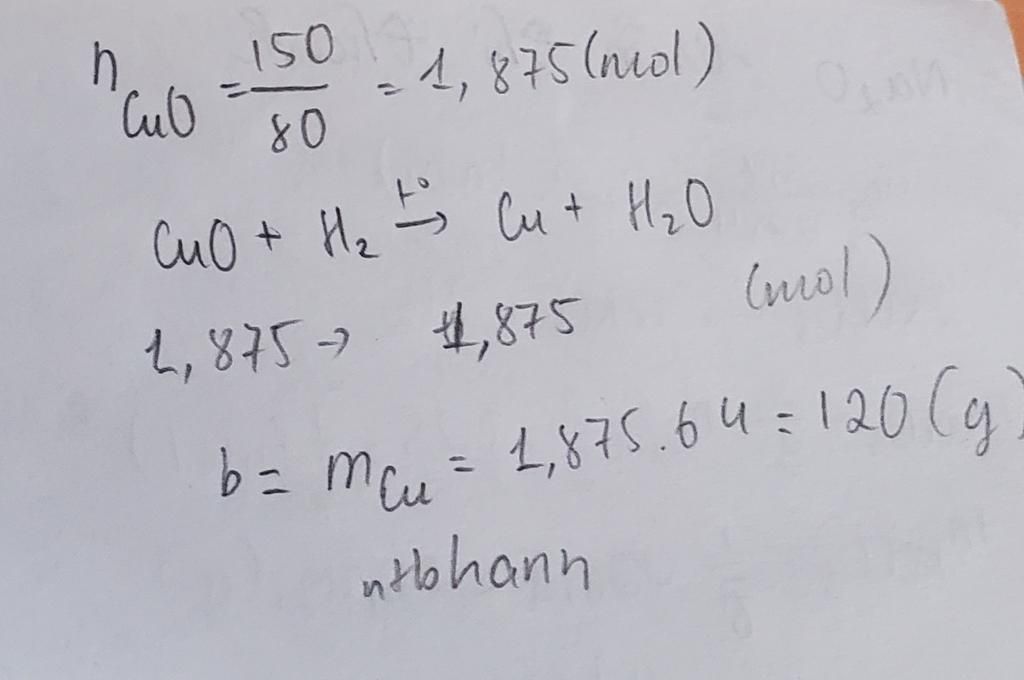 n CuO = 150/80 = 1,875 (mol)
CuO + H₂ →(t°) Cu + H₂O
1,875 → 1,875 (mol)
b = m Cu = 1,875 . 64 = 120 (g)